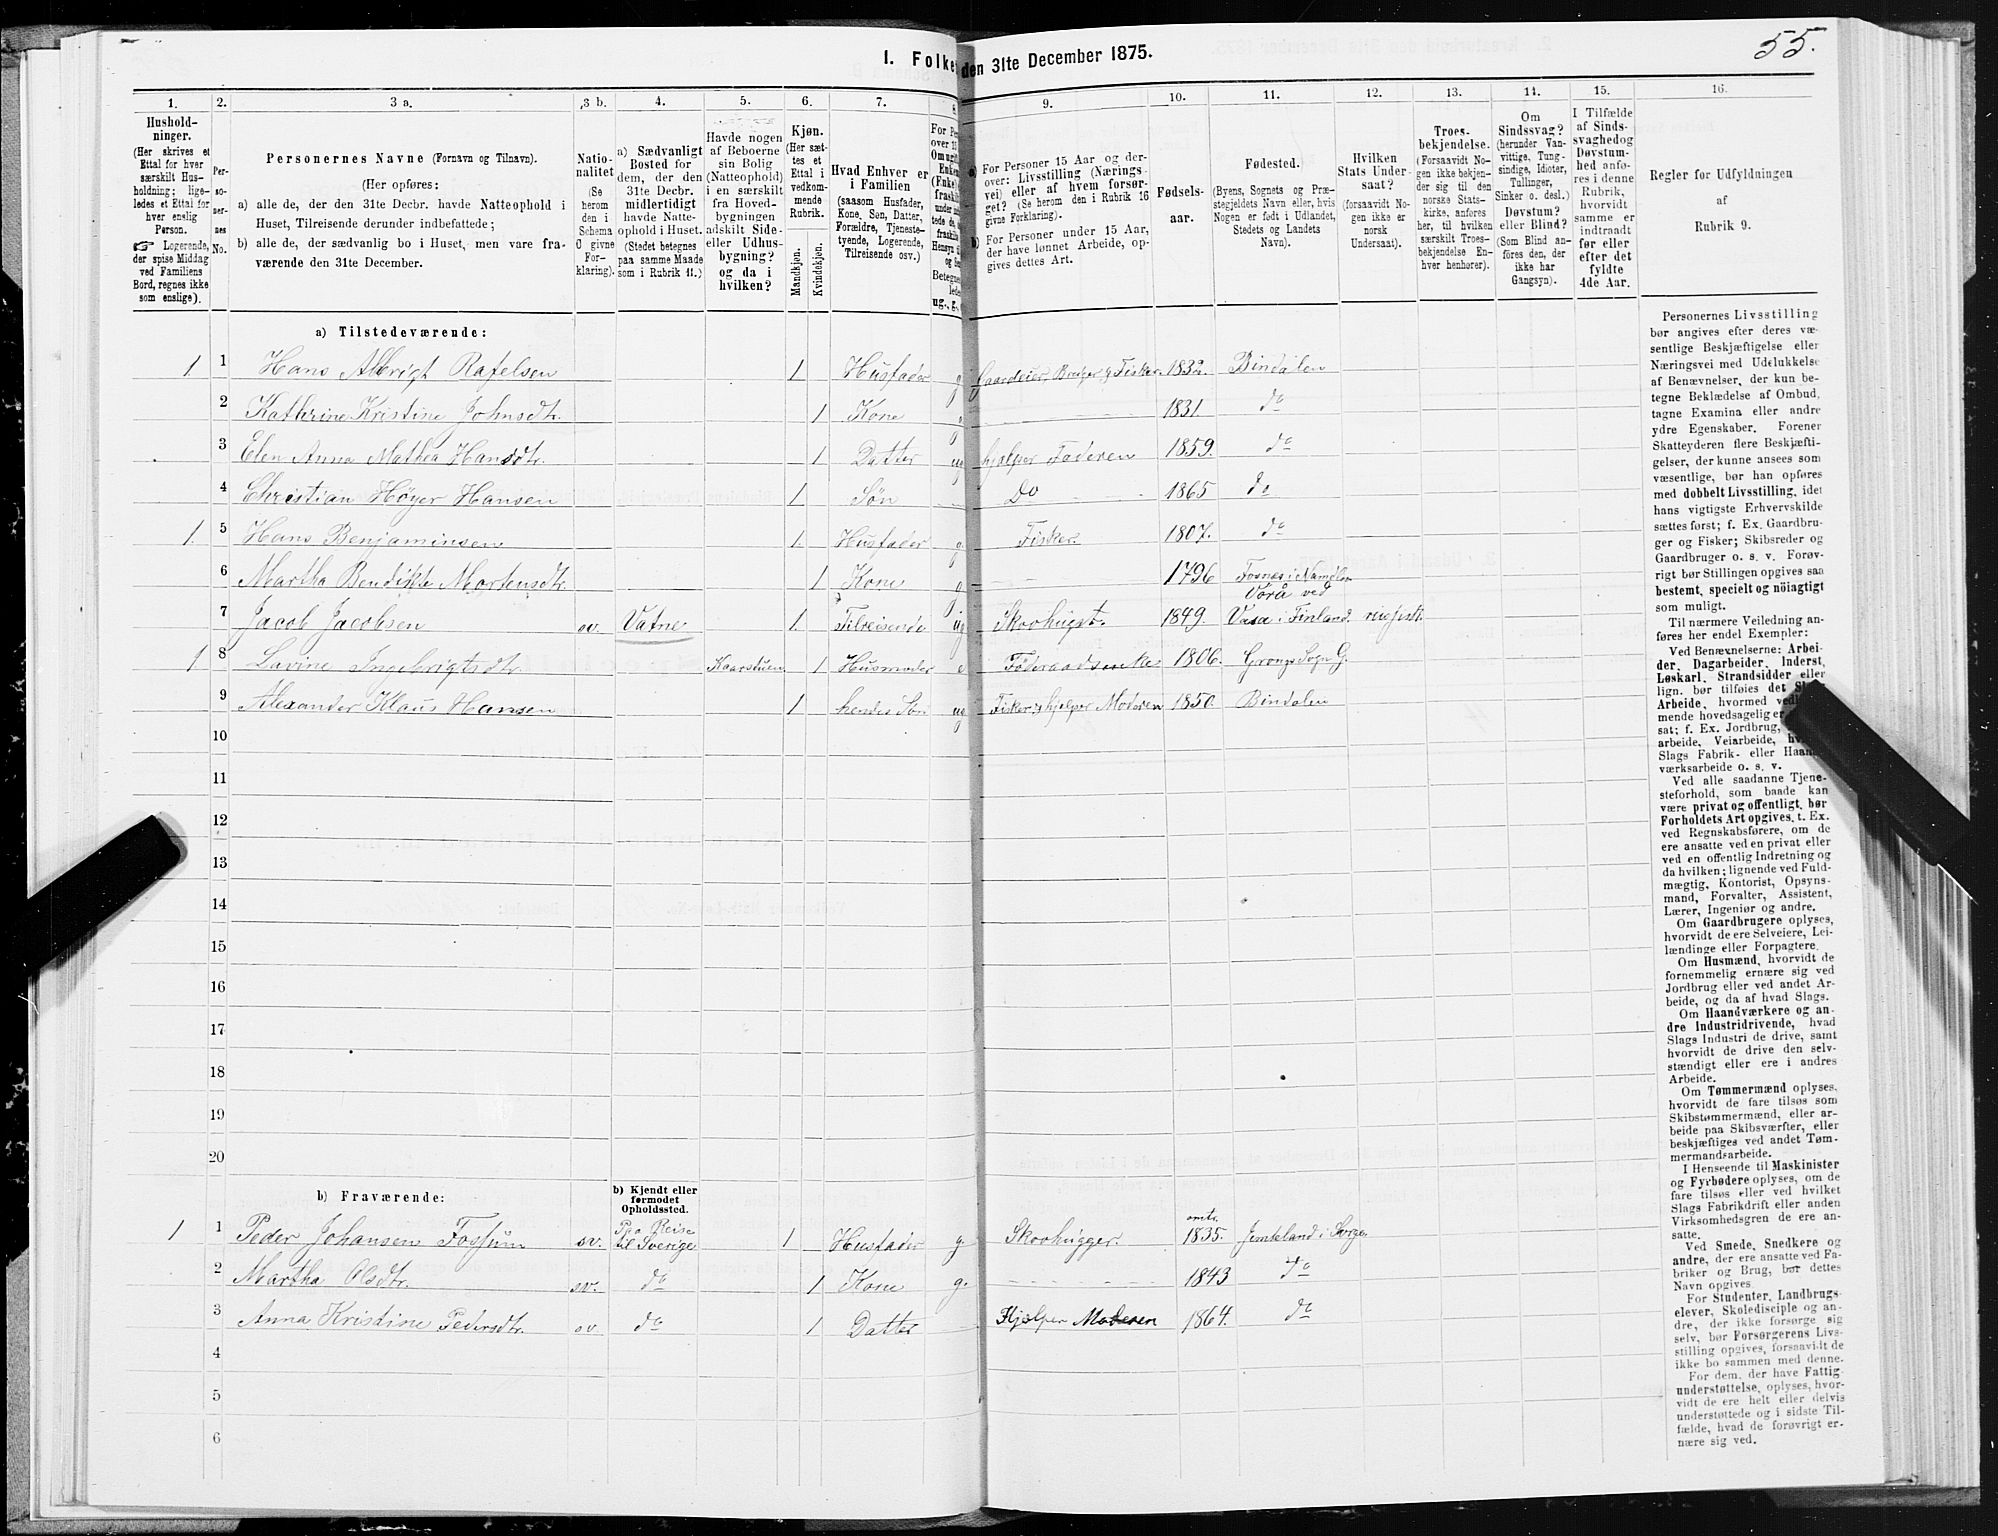 55.
I. Folke den 31te December 1875.
1. 2. 3 a. 3 b. 4. 5. 6. 7. 8. 9. 10. 11. 12. 13. 14. 15. 16.
Hushold-
ninger.
(Her skrives et
Ettal for hver
særskilt Hus-
holdning; lige-
ledes et Ettal for
hver enslig
Person.
☞ Logerende,
der spise Middag
ved Familiens
Bord, regnes ikke
som enslige).
Per-
so-
ner-
nes
No.
Personernes Navne (Fornavn og Tilnavn).
(Her opføres:
a) alle de, der den 31te Decbr. havde Natteophold i
Huset, Tilreisende derunder indbefattede;
b) alle de, der sædvanlig bo i Huset, men vare fra-
værende den 31te December.
Natio-
nalitet
(Se
herom
den i
Schema
O givne
For-
klaring).
a) Sædvanligt
Bosted for
dem, der den
31te Decbr.
midlertidigt
havde Natte-
ophold i Huset.
(Stedet betegnes
paa samme Maade
som i Rubrik 11.)
Havde nogen
af Beboerne
sin Bolig
(Natteophold)
i en særskilt
fra Hoved-
bygningen
adskilt Side-
eller Udhus-
bygning?
og da i
hvilken?
Kjøn.
(Her sæt-
tes et
Ettal i
vedkom-
mende
Rubrik.
Mandkjøn.
Kvindekjøn.
Hvad Enhver er
i Familien
(saasom Husfader,
Kone, Søn, Datter,
Forældre, Tjeneste-
tyende, Logerende,
Tilreisende osv.)
For Pe
over 15
Om ugift
Enke
(Enke)
fraskil
under inde
tede de,
fraskilte
Hensyn ti
og Se
Betegne
lede
ug., g.,
a) For Personer 15 Aar og der-
over: Livsstilling (Nærings-
vei) eller af hvem forsør-
get? (Se herom den i Rubrik 16
givne Forklaring).
b) For Personer under 15 Aar,
der have lønnet Arbeide, op-
gives dettes Art.
Fødsels-
aar.
Fødested.
(Byens, Sognets og Præ-
stegjeldets Navn eller, hvis
Nogen er født i Udlandet,
Stedets og Landets
Navn).
Hvilken
Stats Under-
saat?
(forsaavidt No-
gen ikke er
norsk
Undersaat).
Troes-
bekjendelse.
(Forsaavidt No-
gen ikke bekjen-
der sig til den
norske Stats-
kirke, anføres
her, til hvilken
særskilt Troes-
bekjendelse En-
hver henhører).
Om
Sindssvag?
(herunder Van-
vittige, Tung-
sindige, Idioter,
Tullinger,
Sinker o. desl.)
Døvstum?
eller Blind?
(Som Blind an-
føres den, der
ikke har
Gangsyn).
I Tilfælde
af Sinds-
svaghed og
Døvstum-
hed anfø-
res i denne
Rubrik,
hvorvidt
samme er
indtraadt
før eller
efter det
fyldte
4de Aar.
Regler for Udfyldningen
af
Rubrik 9.
a) Tilstedeværende:
1 1 Hans Albrigt Rafelsen 1 Husfader g Gaardeier, Bruger & Fisker. 1832. Bindalen
2 Kathrine Kristine Johnsdtr. 1 Kone g 1831. do
3 Elen Anna Mathea Hansdtr. 1 Datter ug hjelper Faderen 1859. do
4 Christian Høyer Hansen 1 Søn Do 1865 do
1. 5 Hans Benjaminsen 1. Husfader g. Fisker. 1807. do
6 Martha Bendikte Mortensdtr. 1 Kone g 1796 Fosnæs i Namdlen
7 Jacob Jacobsen ov. Vatne 1. Tilreisende ug Skovhugst. 1849. Vörå ved
Vasa i Finland.
1 8 Lavine Ingebrigtsdtr. Kaarstuen 1 Husmoder e Føderaadsenke 1806. Grongs Sogn G.
9 Alexander Klaus Hansen 1 hendes Søn ug Fisker & hjelper Moderen 1850. Bindalen
10
11
12
13
14
15
16
17
18
19
20
b) Fraværende:
b) Kjendt eller
formodet
Opholdssted.
1 1 Peder Johansen Fossum sv. Paa Reise
til Sverige 1 Husfader g Skovhugger. omtr.
1835. Jemteland i Sverge.
2 Martha Olsdtr. sv. do 1 Kone g. 1843 do
3 Anna Kristine Pedersdtr. sv do 1 Datter Hjelper Moderen 1864. do
4
5
6
Personernes Livsstilling
bør angives efter deres væ-
sentlige Beskjæftigelse eller
Næringsvei med Udelukkelse
af Benævnelser, der kun be-
tegne Beklædelse af Ombud,
tagne Examina eller andre
ydre Egenskaber. Forener
Skatteyderen flere Beskjæfti-
gelser, der kunne ansees som
væsentlige, bør han opføres
med dobbelt Livsstilling, idet
hans vigtigste Erhvervskilde
sættes først; f. Ex. Gaardbru-
ger og Fisker; Skibsreder og
Gaardbruger o. s. v. Forøv-
rigt bør Stillingen opgives saa
bestemt, specielt og nøiagtigt
som muligt.
Til nærmere Veiledning an-
føres her endel Exempler:
Ved Benævnelserne: Arbei-
der, Dagarbeider, Inderst,
Løskarl, Strandsidder eller
lign. bør tilføies det Sl
Arbeide, hvormed ved
mende hovedsagelig er
sat; f. Ex. Jordbrug,
arbeide, Veiarbeide, hv
Slags Fabrik- eller Haan
værksarbeide o. s. v.
Ved alle saadanne Tjene-
steforhold, som baade kan
være privat og offentligt, bør
Forholdets Art opgives, t. Ex.
ved Regnskabsførere, om de
ere ansatte ved en privat eller
ved en offentlig Indretning og
da hvilken; lignende ved Fuld-
mægtig, Kontorist, Opsyns-
mand, Forvalter, Assistent,
Lærer, Ingeniør og andre.
Om Gaardbrugere oplyses,
hvorvidt de ere Selveiere, Lei-
lændinge eller Forpagtere.
Om Husmænd, hvorvidt de
fornemmelig ernære sig ved
Jordbrug eller ved andet Ar-
beide, og da af hvad Slags.
Om Haandværkere og an-
dre Industridrivende, hvad
Slags Industri de drive, samt
hvorvidt de drive den selv-
stændigt eller ere i andres
Arbeide.
Om Tømmermænd oplyses,
hvorvidt de fare tilsøs som
Skibstømmermænd, eller ar-
beide paa Skibsværfter, eller
beskjæftiges ved andet Tøm-
mermandsarbeide.
I Henseende til Maskinister
og Fyrbødere oplyses, om de
fare tilsøs eller ved hvilket
Slags Fabrikdrift eller anden
Virksomhedsgren de ere an-
satte.
Ved Smede, Snedkere og
andre, der ere ansatte ved Fa-
briker og Brug, bør dettes
Navn opgives.
For Studenter, Landbrugs-
elever, Skoledisciple og an-
dre, der ikke forsørge sig
selv, bør Forsørgerens Livs-
stilling opgives, forsaavidt de
ikke bo sammen med denne.
For dem, der have Fattig-
understøttelse, oplyses, hvor-
vidt de ere helt eller delvis
understøttede og i sidste Til-
fælde, hvad de forøvrigt er-
nære sig ved.